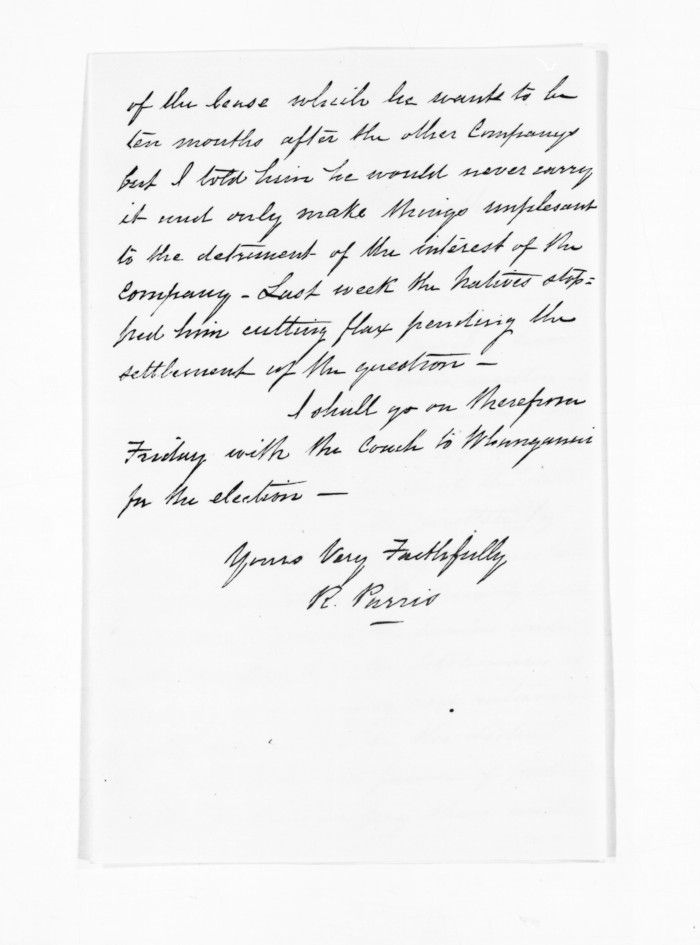 of the lease which he wants to be
ten months after the other Companys
but I told him he would never carry
it and only make things unplesant
to the detriment of the interest of the
Company - Last week the Natives stop=
ped him cutting flax pending the
settlement of the question -
I shall go on therefrom
Friday with the Coach to Whanganui
for the election -
Yours Very Faithfully
R. Parris